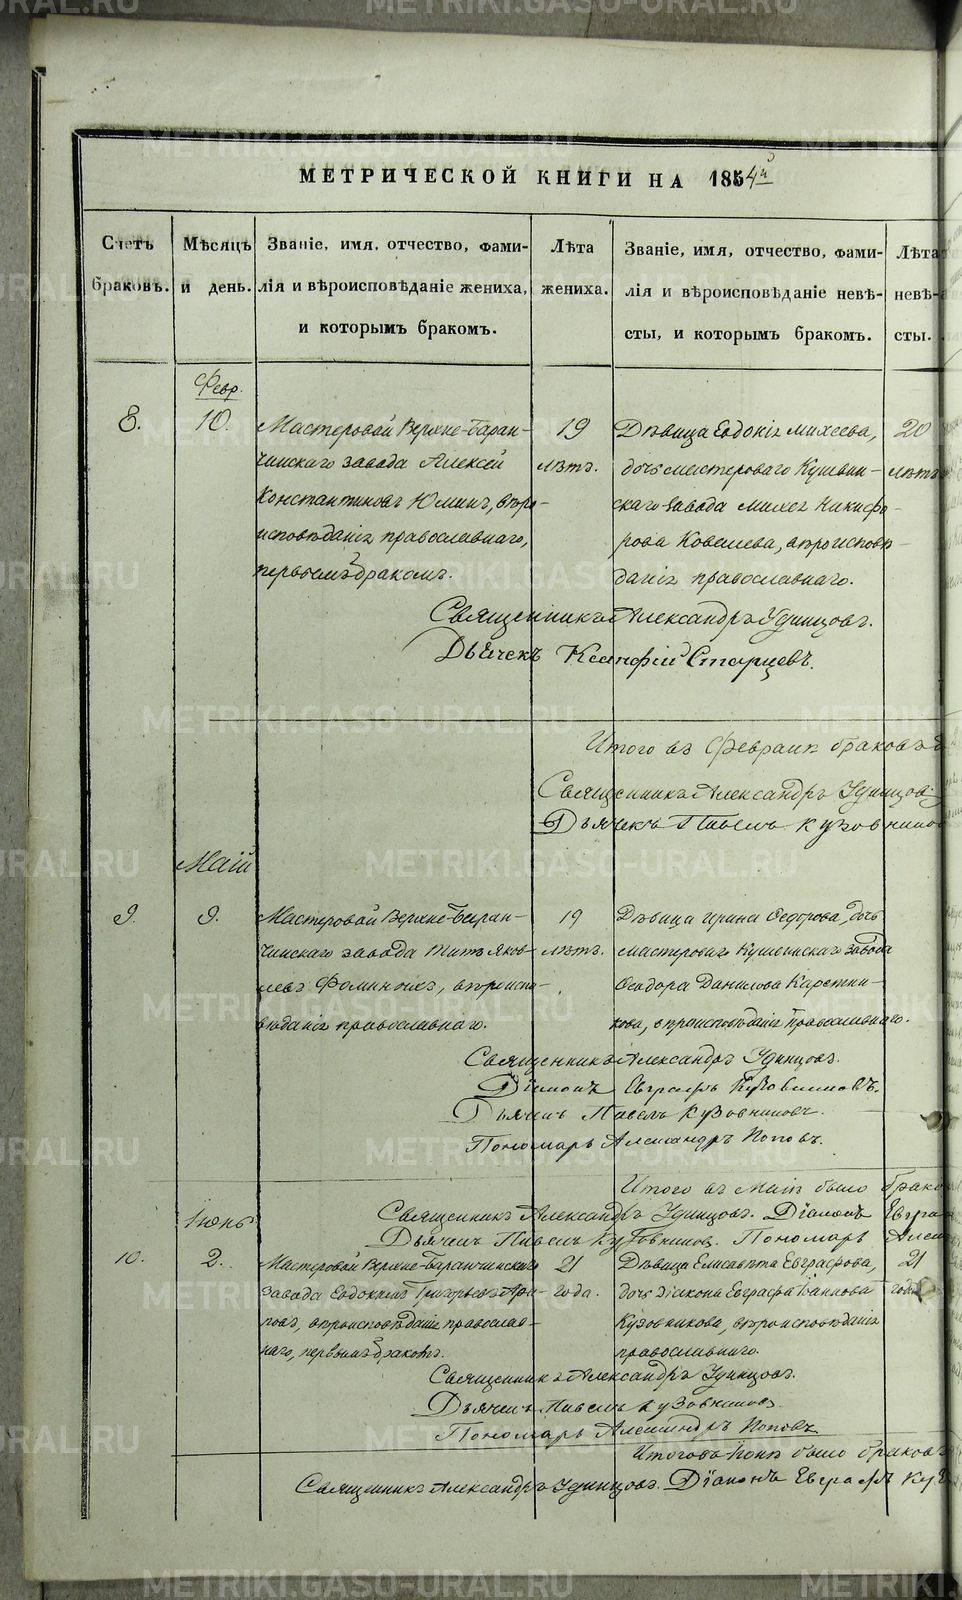 МЕТРИЧЕСКОЙ КНИГИ НА 1854й
Счетъ браковъ.
Мѣсяцъ и день.
Званіе, имя, отчество, фами-
лія и вѣроисповѣданіе жениха,
и которымъ бракомъ.
Лѣта жениха.
Званіе, имя, отчество, фами-
лія и вѣроисповѣданіе невѣ-
сты, и которымъ бракомъ.
Лѣта невѣ-
сты.
Февр.
8.
10.
Мастеровой Верхне-Баран-
чинскаго завода Алексей
Константиновъ Юминъ, вѣро-
исповѣданія православнаго,
первымъ бракомъ.
19
лѣтъ.
Дѣвица Евдокія Михеева,
дочь мастероваго Кушвин-
скаго завода Михея Никифо-
рова Ковшева, вѣроисповѣ-
данія православнаго.
20
лѣтъ
Священникъ Александръ Удинцовъ.
Дьячекъ Ксенофій Старцевъ.
Итого въ Февралѣ браковъ
Священникъ Александръ Удинцовъ
Дьячекъ Павелъ Кузовников
Маій
9.
9.
Мастеровой Верхне-Баран-
чинскаго завода Титъ Яков-
левъ Фоминыхъ, вѣроиспо-
вѣданія православнаго.
19
лѣтъ.
Дѣвица Ирина Федорова, дочь
мастероваго Кушвинскаго завода
Феодора Данилова Каретни-
кова, вѣроисповѣданія православнаго.
Священникъ Александръ Удинцовъ.
Діаконъ Евграфъ Кузовниковъ.
Дьячекъ Павелъ Кузовниковъ.
Пономарь Александръ Поповъ.
Итого въ Маіѣ было брако
Священникъ Александръ Удинцовъ. Діаконъ Евгра
Дьячекъ Павелъ Кузовниковъ. Пономарь Алекс
Іюнь
10.
2.
Мастеровой Верхне-Баранчинскаго
завода Евдокимъ Григорьевъ
вѣроисповѣданія православ-
наго, первымъ бракомъ.
21
года.
Дѣвица Елисавета Евграфова,
дочь діакона Евграфа Іоаннова
Кузовникова, вѣроисповѣданія
православнаго.
21
года
Священникъ Александръ Удинцовъ.
Дьячекъ Павелъ Кузовниковъ
Пономарь Александръ Поповъ
Итого въ Іюнѣ было браковъ
Священникъ Александръ Удинцовъ. Діаконъ Евграфъ Куз
METRIKI.GASO-URAL.RU